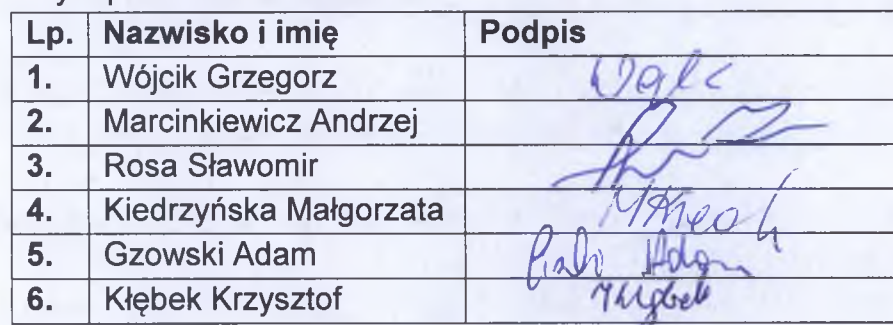 Lp. Nazwisko i imię Podpis
1. Wójcik Grzegorz
2. Marcinkiewicz Andrzej
3. Rosa Sławomir
4. Kiedrzyńska Małgorzata
5. Gzowski Adam Adam
6. Kłębek Krzysztof